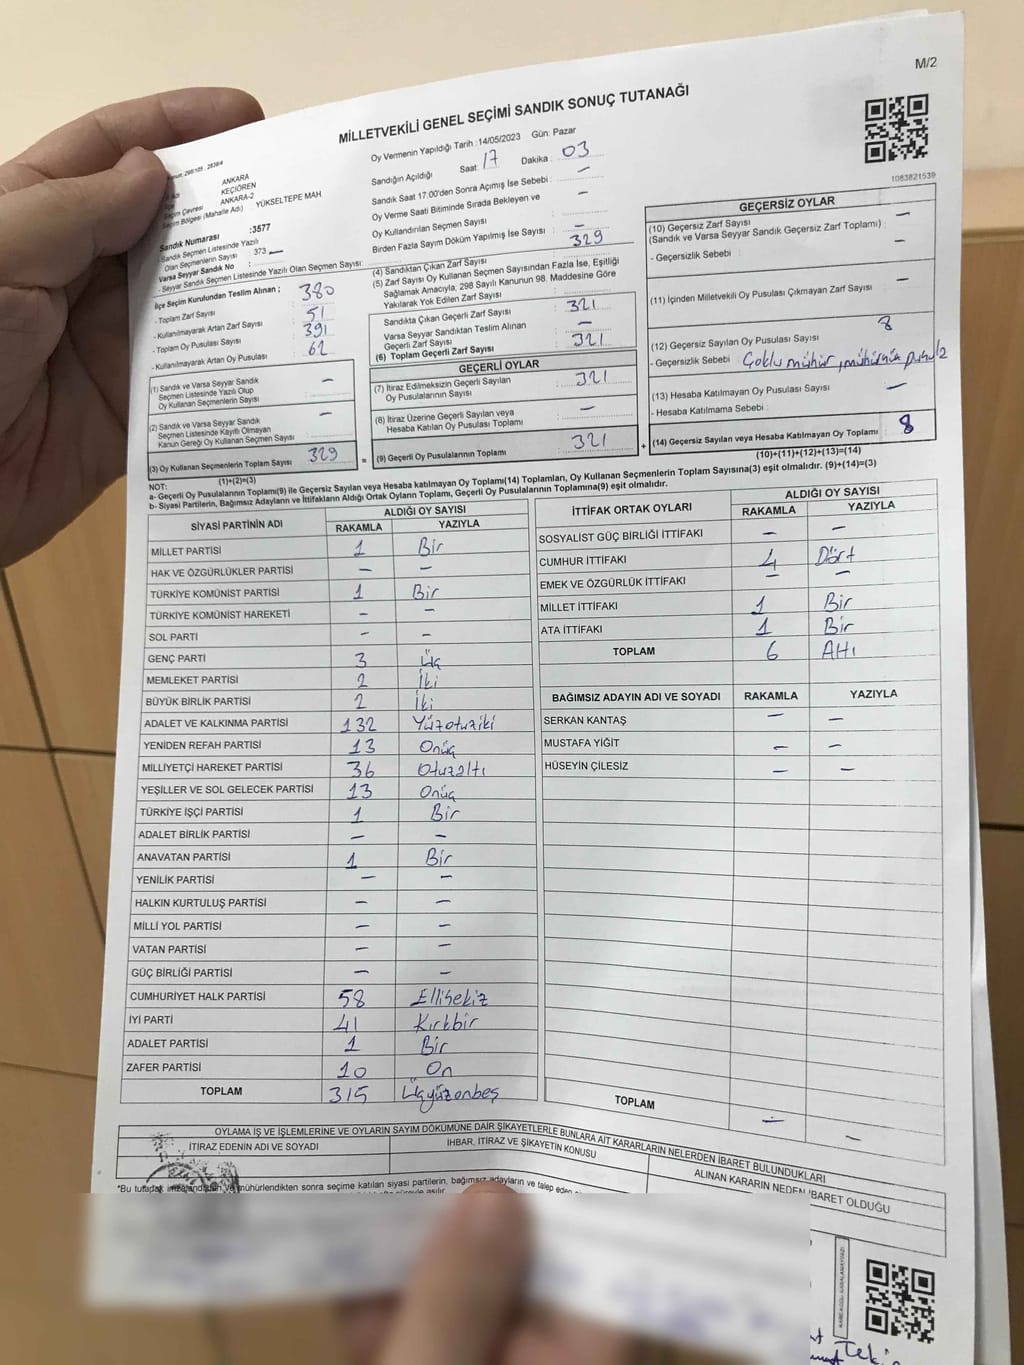 M/2
MİLLETVEKİLİ GENEL SEÇİMİ SANDIK SONUÇ TUTANAĞI
1083821539
ANKARA
KEÇİÖREN
ANKARA-2
Seçim Bölgesi (Mahalle Adı) YÜKSELTEPE MAH.
Sandık Numarası :3577
Sandık Seçmen Listesinde Yazılı
Olan Seçmenlerin Sayısı 373 —
Varsa Seyyar Sandık No :
- Seyyar Sandık Seçmen Listesinde Yazılı Olan Seçmen Sayısı:
İlçe Seçim Kurulundan Teslim Alınan ;
- Toplam Zarf Sayısı 380
- Kullanılmayarak Artan Zarf Sayısı 51
- Toplam Oy Pusulası Sayısı 391
- Kullanılmayarak Artan Oy Pusulası 62
(1) Sandık ve Varsa Seyyar Sandık
Seçmen Listesinde Yazılı Olup
Oy Kullanan Seçmenlerin Sayısı —
(2) Sandık ve Varsa Seyyar Sandık
Seçmen Listesinde Kayıtlı Olmayan
Kanun Gereği Oy Kullanan Seçmen Sayısı —
(3) Oy Kullanan Seçmenlerin Toplam Sayısı 329
(1)+(2)=(3)
Oy Vermenin Yapıldığı Tarih : 14/05/2023 Gün: Pazar
Sandığın Açıldığı Saat: 17 Dakika : 03
Sandık Saat 17:00'den Sonra Açımış İse Sebebi : —
Oy Verme Saati Bitiminde Sırada Bekleyen ve
Oy Kullandırılan Seçmen Sayısı —
Birden Fazla Sayım Döküm Yapılmış İse Sayısı : —
(4) Sandıktan Çıkan Zarf Sayısı 329
(5) Zarf Sayısı Oy Kullanan Seçmen Sayısından Fazla İse, Eşitliği
Sağlamak Amacıyla, 298 Sayılı Kanunun 98. Maddesine Göre
Yakılarak Yok Edilen Zarf Sayısı
Sandıkta Çıkan Geçerli Zarf Sayısı 321
Varsa Seyyar Sandıktan Teslim Alınan
Geçerli Zarf Sayısı —
(6) Toplam Geçerli Zarf Sayısı 321
GEÇERLİ OYLAR
(7) İtiraz Edilmeksizin Geçerli Sayılan
Oy Pusulalarının Sayısı 321
(8) İtiraz Üzerine Geçerli Sayılan veya
Hesaba Katılan Oy Pusulası Toplamı —
(9) Geçerli Oy Pusulalarının Toplamı 321
GEÇERSİZ OYLAR
(10) Geçersiz Zarf Sayısı —
(Sandık ve Varsa Seyyar Sandık Geçersiz Zarf Toplamı) :
- Geçersizlik Sebebi : —
(11) İçinden Milletvekili Oy Pusulası Çıkmayan Zarf Sayısı —
(12) Geçersiz Sayılan Oy Pusulası Sayısı 8
- Geçersizlik Sebebi : Çoklu mühür,
(13) Hesaba Katılmayan Oy Pusulası Sayısı —
- Hesaba Katılmama Sebebi :
(14) Geçersiz Sayılan veya Hesaba Katılmayan Oy Toplamı 8
(10)+(11)+(12)+(13)=(14)
NOT:
a- Geçerli Oy Pusulalarının Toplamı(9) ile Geçersiz Sayılan veya Hesaba katılmayan Oy Toplamı(14) Toplamları, Oy Kullanan Seçmenlerin Toplam Sayısına(3) eşit olmalıdır. (9)+(14)=(3)
b- Siyasi Partilerin, Bağımsız Adayların ve İttifakların Aldığı Ortak Oyların Toplamı, Geçerli Oy Pusulalarının Toplamına(9) eşit olmalıdır.
SİYASİ PARTİNİN ADI ALDIĞI OY SAYISI
RAKAMLA YAZIYLA
MİLLET PARTİSİ 1 Bir
HAK VE ÖZGÜRLÜKLER PARTİSİ — —
TÜRKİYE KOMÜNİST PARTİSİ 1 Bir
TÜRKİYE KOMÜNİST HAREKETİ — —
SOL PARTİ — —
GENÇ PARTİ 3 Üç
MEMLEKET PARTİSİ 2 İki
BÜYÜK BİRLİK PARTİSİ 2 İki
ADALET VE KALKINMA PARTİSİ 132 Yüzotuziki
YENİDEN REFAH PARTİSİ 13 Onüç
MİLLİYETÇİ HAREKET PARTİSİ 36 Otuzaltı
YEŞİLLER VE SOL GELECEK PARTİSİ 13 Onüç
TÜRKİYE İŞÇİ PARTİSİ 1 Bir
ADALET BİRLİK PARTİSİ — —
ANAVATAN PARTİSİ 1 Bir
YENİLİK PARTİSİ — —
HALKIN KURTULUŞ PARTİSİ — —
MİLLİ YOL PARTİSİ — —
VATAN PARTİSİ — —
GÜÇ BİRLİĞİ PARTİSİ — —
CUMHURİYET HALK PARTİSİ 58 Ellisekiz
İYİ PARTİ 41 Kırkbir
ADALET PARTİSİ 1 Bir
ZAFER PARTİSİ 10 On
TOPLAM 315 Üçyüzonbeş
İTTİFAK ORTAK OYLARI ALDIĞI OY SAYISI
RAKAMLA YAZIYLA
SOSYALİST GÜÇ BİRLİĞİ İTTİFAKI — —
CUMHUR İTTİFAKI 4 Dört
EMEK VE ÖZGÜRLÜK İTTİFAKI — —
MİLLET İTTİFAKI 1 Bir
ATA İTTİFAKI 1 Bir
TOPLAM 6 Altı
BAĞIMSIZ ADAYIN ADI VE SOYADI RAKAMLA YAZIYLA
SERKAN KANTAŞ — —
MUSTAFA YİĞİT — —
HÜSEYİN ÇİLESİZ — —
TOPLAM — —
OYLAMA İŞ VE İŞLEMLERİNE VE OYLARIN SAYIM DÖKÜMÜNE DAİR ŞİKAYETLERLE BUNLARA AİT KARARLARIN NELERDEN İBARET BULUNDUKLARI
İTİRAZ EDENİN ADI VE SOYADI IHBAR, İTİRAZ VE ŞİKAYETİN KONUSU ALINAN KARARIN NEDEN İBARET OLDUĞU
mühürlendikten sonra seçime katılan siyasi partilerin, bağımsız adayların ve talep eden